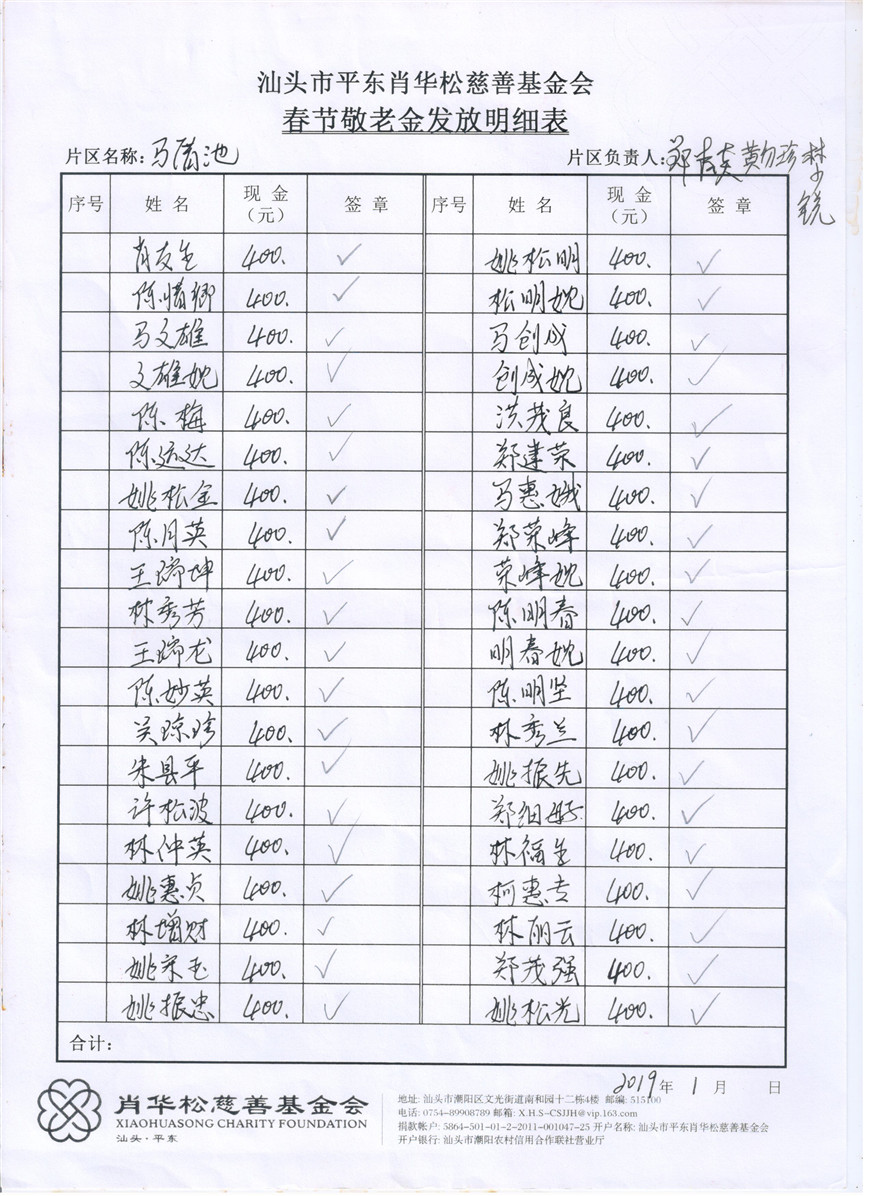 汕头市平东肖华松慈善基金会
春节敬老金发放明细表
片区名称：马 池 片区负责人： 郑 黄 珍 林 锐
序号 姓名 现金（元） 签章 序号 姓名 现金（元） 签章
肖友生 400. ✓ 姚松明 400. ✓
陈惜卿 400. ✓ 松明婏 400. ✓
马文雄 400. ✓ 马创成 400. ✓
文雄婏 400. ✓ 创成婏 400. ✓
陈梅 400. ✓ 洪茂良 400. ✓
陈远达 400. ✓ 郑建荣 400. ✓
姚松金 400. ✓ 马惠娥 400. ✓
陈月英 400. ✓ 郑荣峰 400. ✓
王瑞坤 400. ✓ 荣峰婏 400. ✓
林秀芳 400. ✓ 陈明春 400. ✓
王瑞龙 400. ✓ 明春婏 400. ✓
陈妙英 400. ✓ 陈明坚 400. ✓
吴琼珍 400. ✓ 林秀兰 400. ✓
朱县平 400. ✓ 姚振先 400. ✓
许松波 400. ✓ 郑细 400. ✓
林仲英 400. ✓ 林福生 400. ✓
姚惠贞 400. ✓ 柯惠专 400. ✓
林增财 400. ✓ 林丽云 400. ✓
姚 玉 400. ✓ 郑茂强 400. ✓
姚振忠 400. ✓ 姚松光 400. ✓
合计：
2019年 1月 日
肖华松慈善基金会
XIAOHUASONG CHARITY FOUNDATION
汕头·平东
地址: 汕头市潮阳区文光街道南和园十二栋4楼 邮编: 515100
电话: 0754-89908789 邮箱: X.H.S-CSJJH@vip.163.com
捐款帐户: 5864-501-01-2-2011-001047-25 开户名称: 汕头市平东肖华松慈善基金会
开户银行: 汕头市潮阳农村信用合作联社营业厅